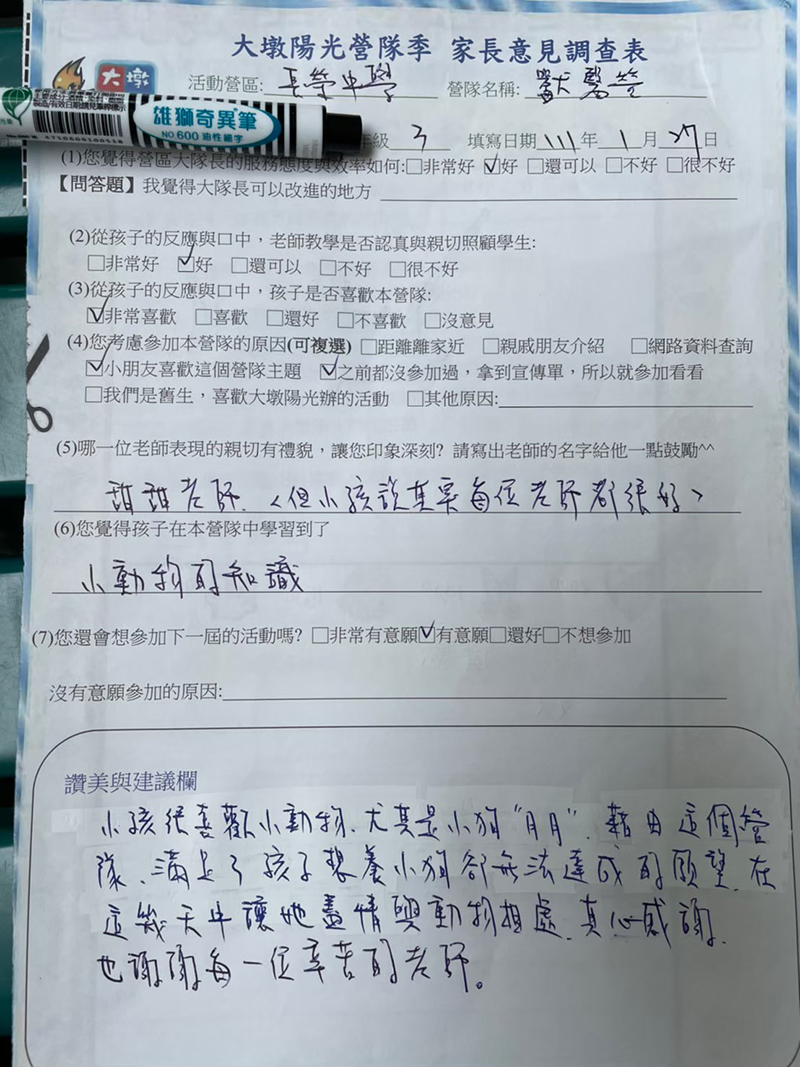 大墩陽光營隊季 家長意見調查表
大墩
活動營區:長榮中學 營隊名稱:獸醫營
雄獅奇異筆
NO.600 油性細字
4710608100518
級 3 填寫日期 111年 1月 27日
(1)您覺得營區大隊長的服務態度與效率如何:□非常好 ☑好 □還可以 □不好 □很不好
【問答題】我覺得大隊長可以改進的地方
(2)從孩子的反應與口中,老師教學是否認真與親切照顧學生:
□非常好 ☑好 □還可以 □不好 □很不好
(3)從孩子的反應與口中,孩子是否喜歡本營隊:
☑非常喜歡 □喜歡 □還好 □不喜歡 □沒意見
(4)您考慮參加本營隊的原因(可複選) □距離離家近 □親戚朋友介紹 □網路資料查詢
☑小朋友喜歡這個營隊主題 ☑之前都沒參加過,拿到宣傳單,所以就參加看看
□我們是舊生,喜歡大墩陽光辦的活動 □其他原因:
(5)哪一位老師表現的親切有禮貌,讓您印象深刻? 請寫出老師的名字給他一點鼓勵^^
甜甜老師.<但小孩說其實每位老師都很好>
(6)您覺得孩子在本營隊中學習到了
小動物的知識
(7)您還會想參加下一屆的活動嗎? □非常有意願☑有意願□還好□不想參加
沒有意願參加的原因:
讚美與建議欄
小孩很喜歡小動物、尤其是小狗"月月". 藉由這個營
隊、滿足了孩子想養小狗卻無法達成的願望.在
這幾天中讓她盡情與動物相處.真心感謝.
也謝謝每一位辛苦的老師。